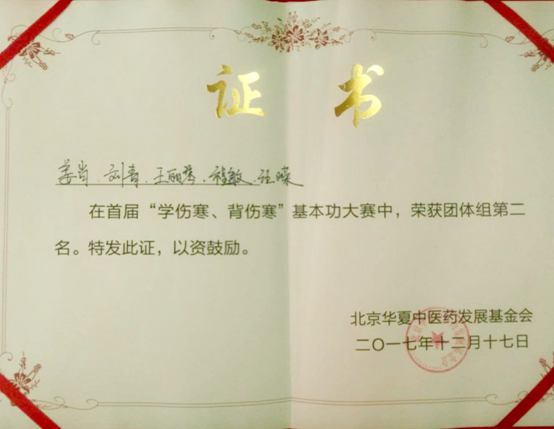 证书
姜尚、刘青、王丽琴、程敏、汪嵘
在首届“学伤寒、背伤寒”基本功大赛中，荣获团体组第二
名。特发此证，以资鼓励。
北京华夏中医药发展基金会
二〇一七年十二月十七日